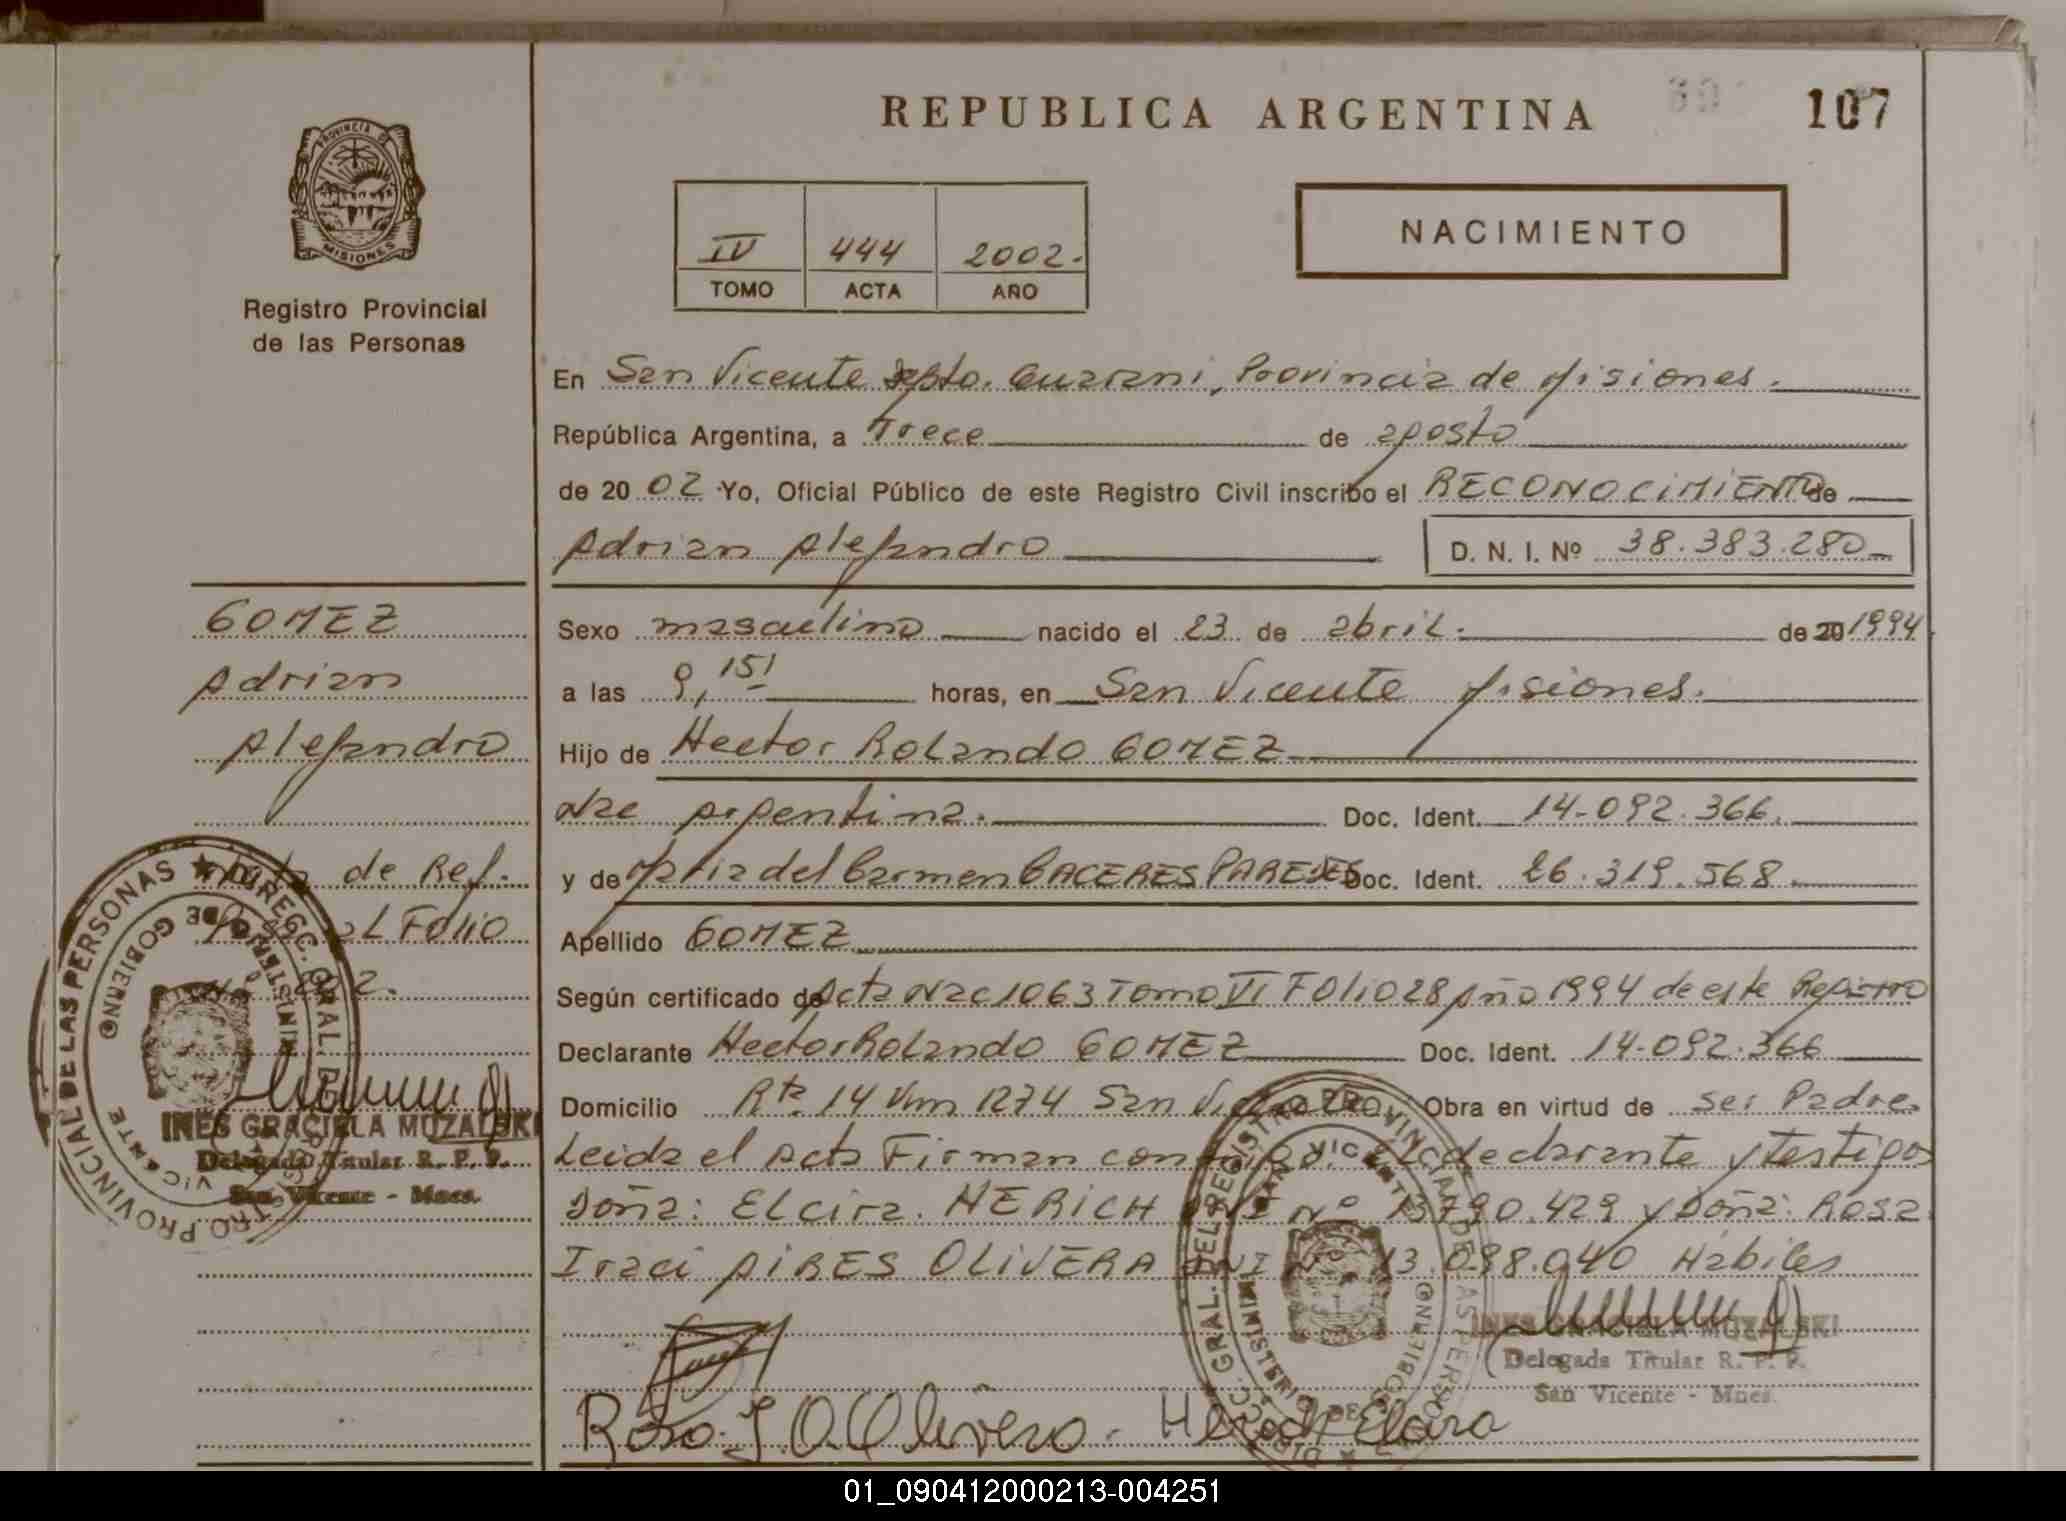 REPUBLICA ARGENTINA
107
PROVINCIA DE
MISIONES
Registro Provincial
de las Personas
IV 444 2002.
TOMO ACTA AÑO
NACIMIENTO
En San Vicente Dpto. Guarani, Provincia de Misiones.
República Argentina, a Trece de agosto
de 2002 Yo, Oficial Público de este Registro Civil inscribo el RECONOCIMIENTO de
Adrian Alejandro D. N. I. Nº 38.383.280
GOMEZ
Adrian
Alejandro
Nota de Ref.
al Folio
Sexo masculino nacido el 23 de abril. de 20 1994
a las 9,15' horas, en San Vicente Misiones.
Hijo de Hector Rolando GOMEZ
Nac Argentina. Doc. Ident. 14-092.366.
y de Maria del Carmen CACERES PAREDES Doc. Ident. 26.319.568.
Apellido GOMEZ
Según certificado de Acta Nac 1063 Tomo VI Folio 28 Año 1994 de este Registro
Declarante Hector Rolando GOMEZ Doc. Ident. 14-092.366
Domicilio Rta. 14 Km 1274 San Vicente Obra en virtud de ser Padre.
Leida el Acta Firman conmigo. El declarante y testigos
Doña: Elcira. HERICH DNI Nº 13790.429 y Doña: Rosa
Iraci PIRES OLIVERA DNI Nº 13.098.040 Hábiles
INES GRACIELA MUZALSKI
Delegada Titular R. P. P.
San Vicente - Mnes.
INES GRACIELA MUZALSKI
Delegada Titular R. P. P.
San Vicente - Mnes.
Rosa. I. O. Olivera. Herich Elcira
01_090412000213-004251